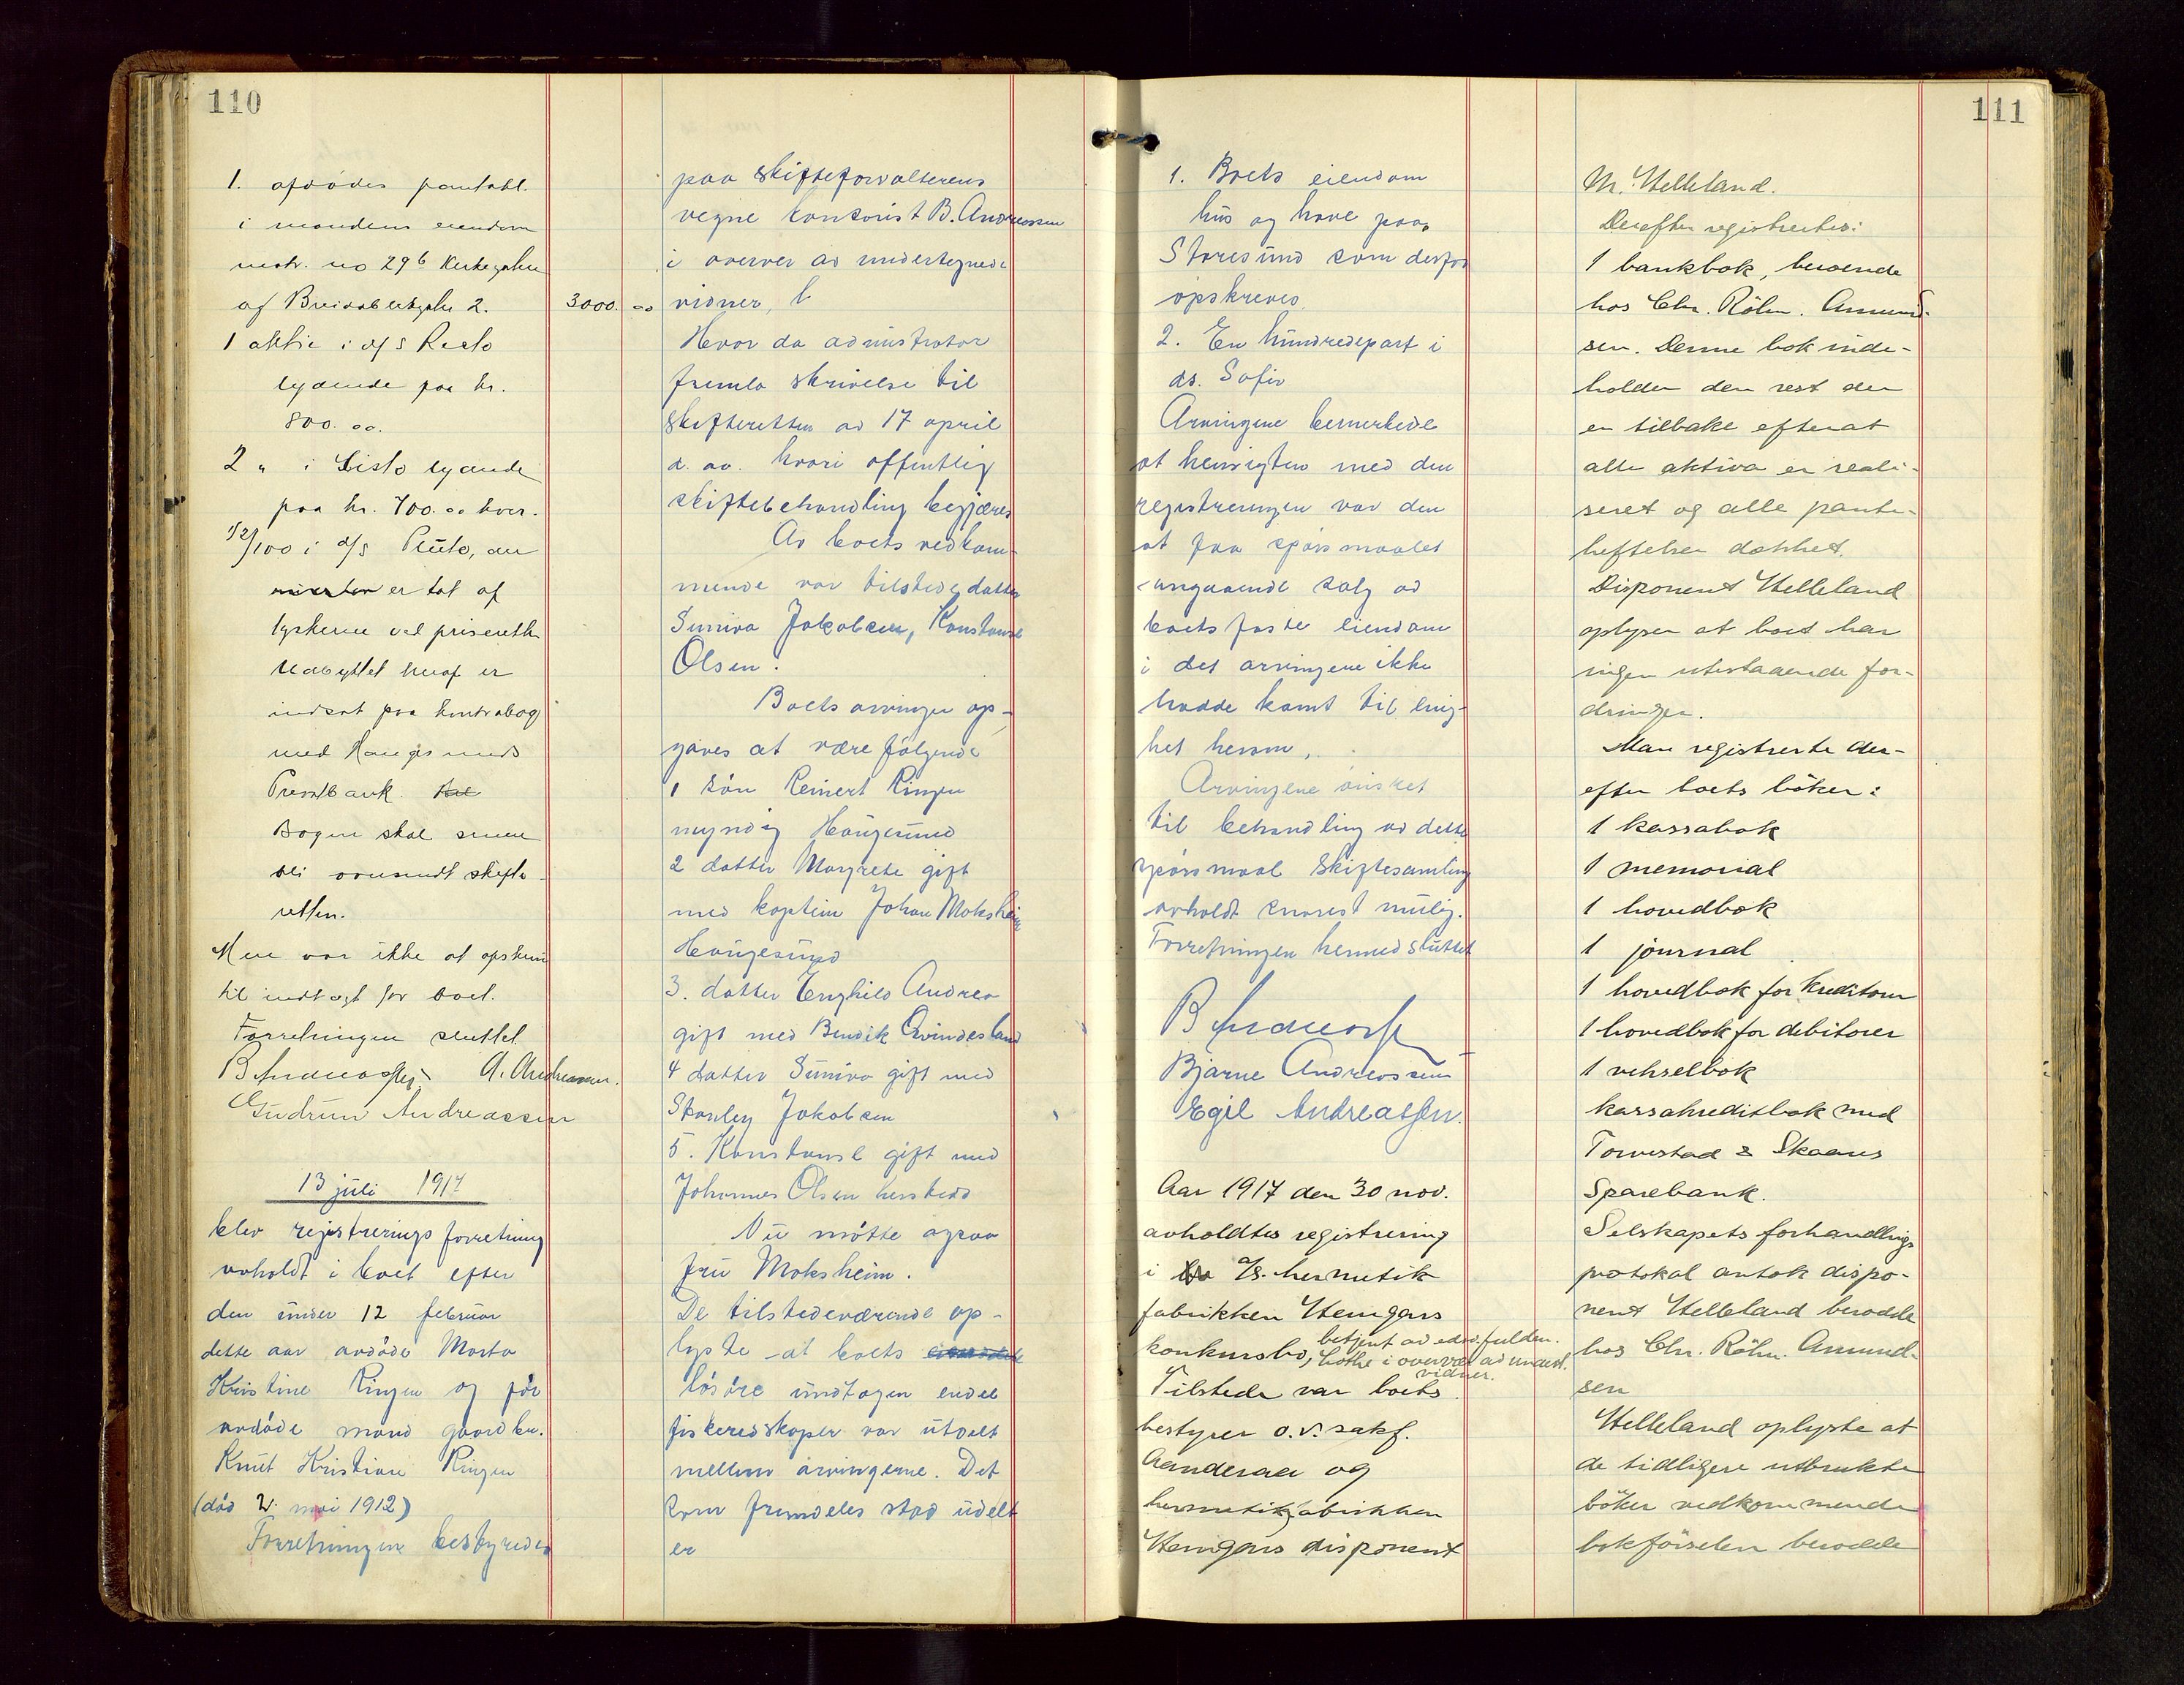 110
1. afdødes pantobl.
i mandens eiendom
matr. no 29b Kirkegaten
af Breidableikgate 2. 3000. 00
1 aktie i d/s Resto
lydende paa kr.
800. 00.
2 " i Sisto lydende
paa kr. 700.00 hver.
1/2/100 i d/s Pluto, den
er tat af
tyskerne ved priseretten
Udbyttet heraf er
indsat paa kontrabog
med Haugesunds
Privatbank.
Bogen skal senere
bli oversendt skifte-
retten.
Mere var ikke at opskrive
til indtægt for boet.
Forretningen sluttet
B Andreassen A. Andreassen.
Gudrun Andreassen
13 juli 1917
blev registrerings forretning
avholdt i boet efter
den under 12 februar
dette aar avdøde Marta
Kristine Ringen og før
avdøde mand gaardbr.
Knut Kristian Ringen
(død 2. mai 1912)
Forretningen bestyredes
paa skifteforvalterens
vegne kontorist B. Andreassen
i overvær av undertegnede
vidner,
Hvor da administrator
fremla skrivelse til
skifteretten av 17 april
d. aa. hvori offentlig
skiftebehandling begjæres
Av boets vedkom-
mende var tilstede datter
Suniva Jakobsen, Konstanse
Olsen.
Boets arvinger op-
gaves at være følgende
1 søn Reinert Ringen
myndig Haugesund
2 datter Margrete gift
med kaptein Johan Moksheim
Haugesund
3. datter Enghild Andrea
gift med Bendik Qvindesland
4 datter Suniva gift med
Stanley Jakobsen
5. Konstanse gift med
Johannes Olsen hersteds
Nu møtte ogsaa
fru Moksheim.
De tilstedeværende op-
lyste at boets
løsøre undtagen endel
fiskeredskaper var utdelt
mellem arvingerne. Det
som fremdeles stod udelt
er
111
1. Boets eiendom
hus og have paa
Storesund som derfor
opskreves
2. En hundredepart i
ds. Safir
Arvingene bemerkede
at hensigten med den
registreringen var den
at faa spørsmaalet
angaaende salg av
boets faste eiendom
i det arvingene ikke
hadde komt til enig-
het herom.
Arvingene ønsket
til behandling av dette
spørsmaal skiftesamling
avholdt snarest mulig.
Forretningen hermed sluttet
B Andreassen
Bjarne Andreassen
Egil Andreassen.
Aar 1917 den 30 nov.
avholdtes registrering
i A/s. hermetik
fabrikken Hemgars
konkursbo, betjent av edsv. fuldm.
Lothe i overvær av undert.
vidner.
Tilstede var boets
bestyrer o.r. sakf.
Aanderaa og
hermetikfabrikken
Hemgars disponent
M. Helleland.
Derefter registrertes:
1 bankbok, beroende
hos Chr. Röhn. Amund-
sen. Denne bok inde-
holder den rest der
er tilbake efterat
alle aktiva er reali-
seret og alle pante-
heftelser dækket.
Disponent Helleland
oplyser at boet har
ingen utestaaende for-
dringer.
Man registrerte der-
efter boets bøker:
1 kassabok
1 memorial
1 hovedbok
1 journal
1 hovedbok for kreditorer
1 hovedbok for debitorer
1 vekselbok
kassakreditbok med
Torvestad & Skaares
Sparebank.
Selskapets forhandlings
protokol antok dispo-
nent Helleland berodde
hos Chr. Röhn. Amund-
sen
Helleland oplyste at
de tidligere utbrukte
bøker vedkommende
bokførselen berodde